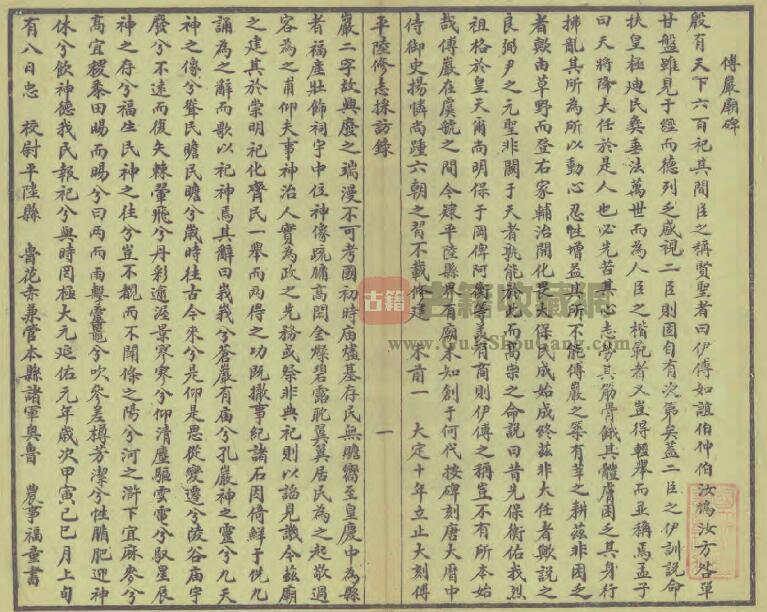 傅巖廟碑
殷有天下六百祀其間臣之稱賢聖者曰伊傅如誼伯仲伯汝鳩汝方咎單
甘盤雖見于經而德列乏感視二臣則固自有次第矣蓋二臣之伊訓說命
扶皇極廸民彝垂法萬世而為人臣之楷範者又豈得輕舉而並稱焉孟子
曰天將降大任於是人也必先苦其心志勞其筋骨餓其體膚困乏其身行
拂亂其所為所以動心忍性增益其所不能傅巖之築有莘之耕茲非困乏
者歟由草野而登右家輔治開化畏大保民成始成終茲非大任者歟說之
良弼尹之元聖非關于天者孰能於此而高宗之命說曰昔先保衡佑我烈
祖格於皇天爾尚明保于罔俾阿衡專美有商則伊傅之稱豈不有所本始
哉傅巖在虞虢之間今隸平陸縣界有廟未知創于何代按碑刻唐大曆中
侍御史揚憐尚踵六朝之習不載修建 末首一 大定十年立止大刻傅
平陸修志採訪錄
一
巖二字故與廢之端漫不可考國初時庙燼基存民無瞻嚮至皇慶中為縣
者福產壯飾祠宇中位神像疏牗高閎金燦碧露耽翼翼居民為之起敬過
容為之肅仰夫事神治人實為政之先務或祭非典祀則以謟見譏今茲廟
之建其於崇明祀化齊民一舉而两得之功既撤事紀諸石因倚鮮于侁九
誦為之辭而歌以祀神焉其辭曰峩峩兮蒼巖有庙兮孔嚴神之靈兮九天
神之像兮聳民瞻民瞻兮歲時往古今來兮是仰是思從變遷兮陵谷庙宇
廢兮不遠而復矢棘翬飛兮丹彩逾渥景寥寥兮仰清塵驅雲電兮馭星辰
神之存兮福生民神之往兮豈不覩而不聞條之陽兮河之滸下宜麻麥兮
高宜稷黍田賜而賜兮曰两而雨擊靈鼉兮吹參差樽芳潔兮牲腯肥迎神
休兮飲神德我民報祀兮與時罔極大元延佑元年歲次甲寅己巳月上旬
有八日忠 校尉平陸縣 魯花赤兼管本縣諸軍奥魯 農事福童書
古籍收藏网
www.GuJiShouCang.com